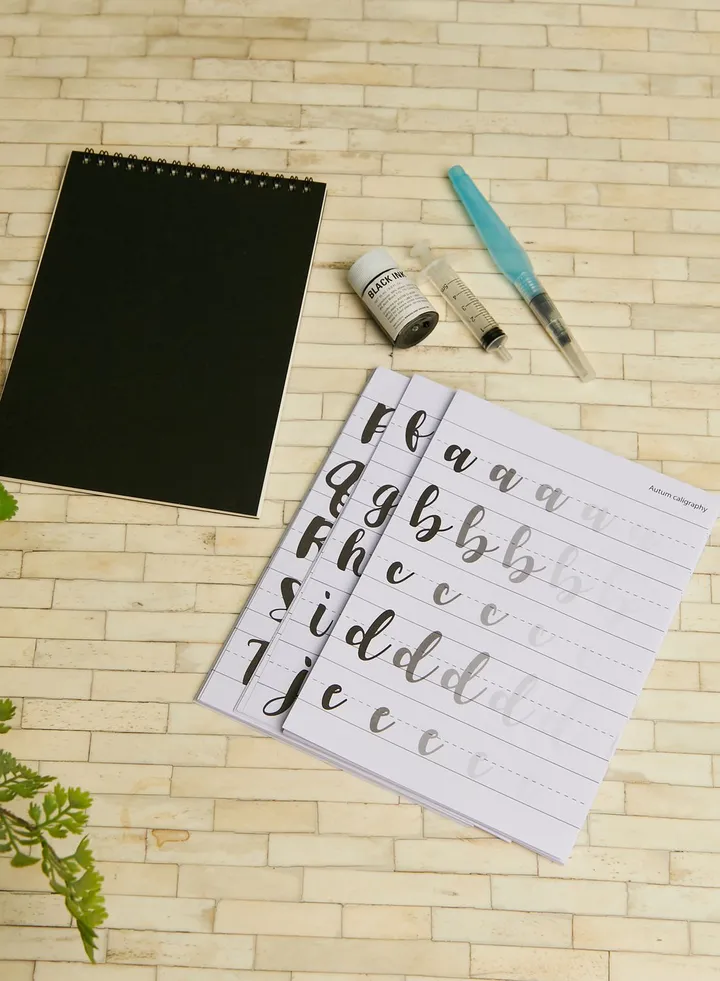 BLACK INK
Autum caligraphy
P
Q
R
S
T
f
g
h
i
j
a a a a a
b b b b b
c c c c
d d d d d
e e e e